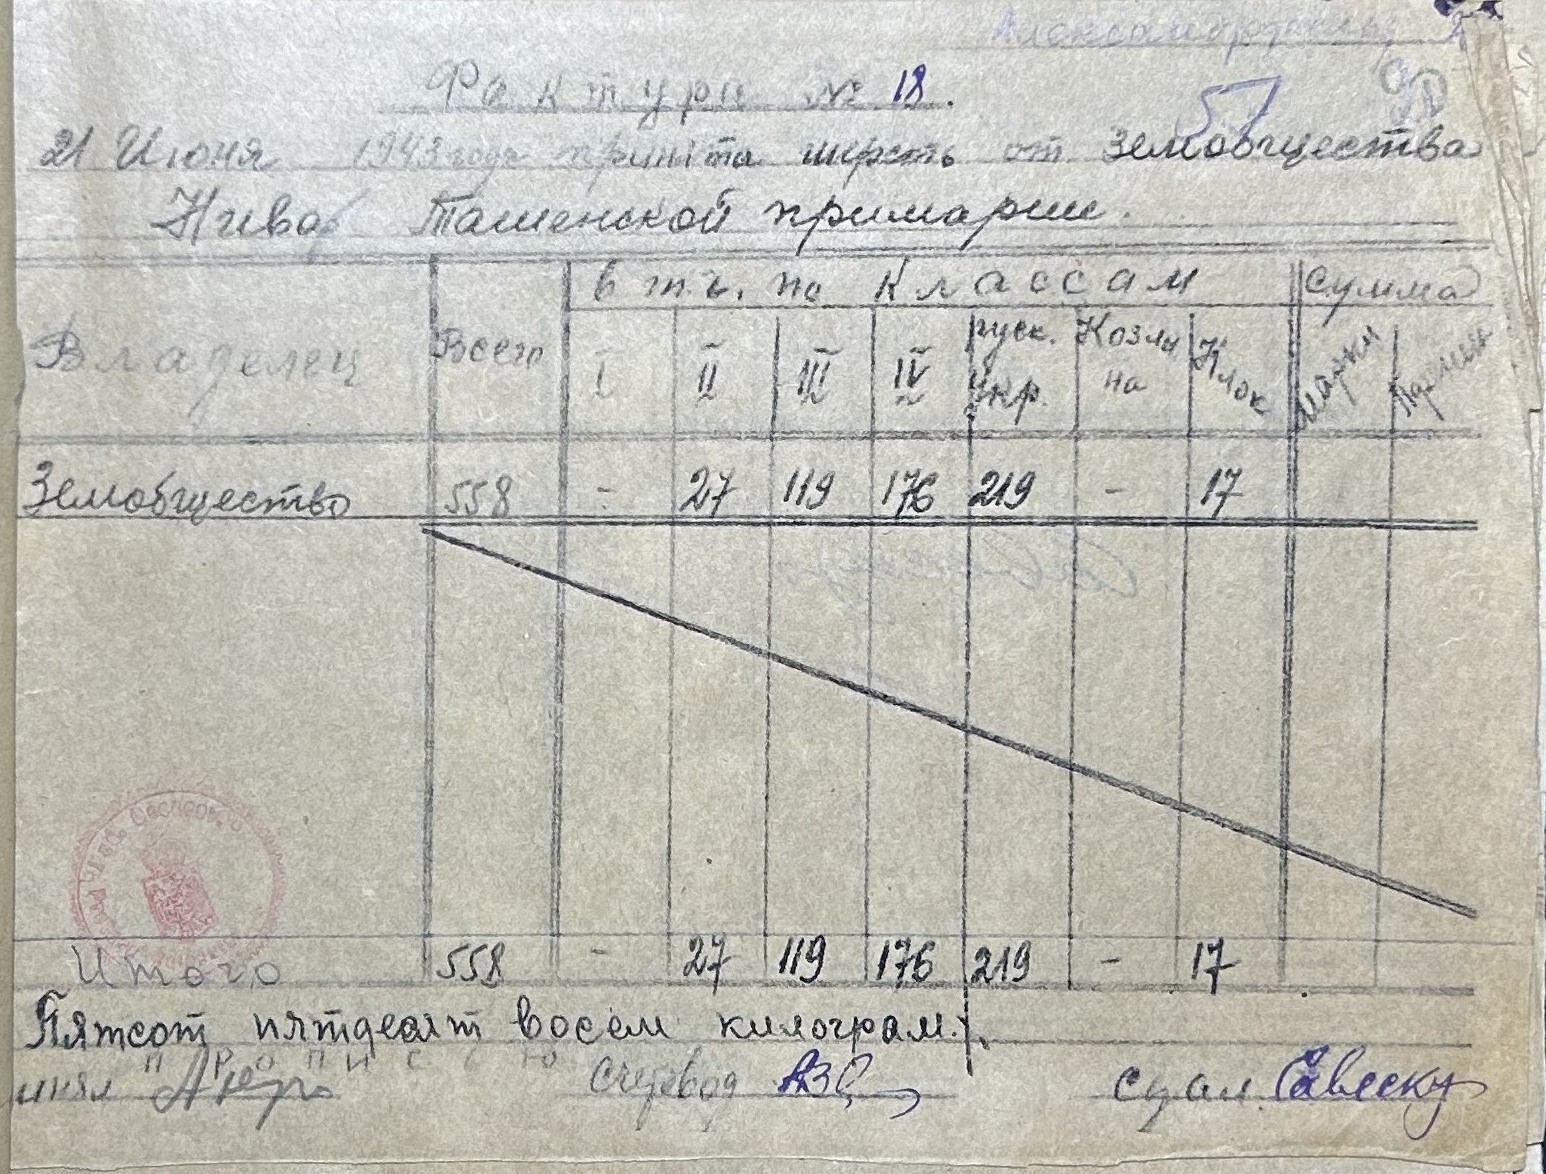 Фактура № 18.
57
21 Июня 1943 года принята шерсть от Земобщества
Нива Ташенской примарии.
Владелец Всего в т.ч. по классам Сумма
I II III IV руск. укр. Козли на Клок марки
Земобщество 558 - 27 119 176 219 - 17
Итого 558 - 27 119 176 219 - 17
Пятсот пятдесят восем килограм.
прописью
инял Счетовод Сдал